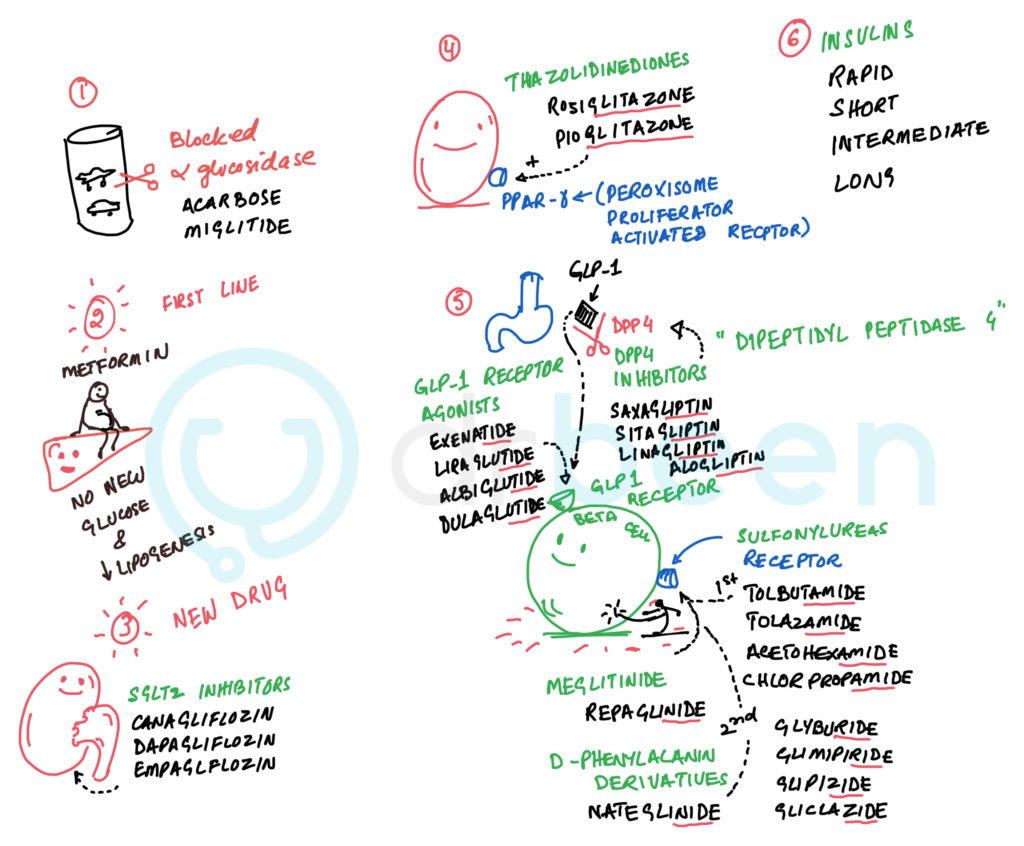 1
Blocked
α glucosidase
ACARBOSE
MIGLITIDE
2
FIRST LINE
METFORMIN
NO NEW
GLUCOSE
&
↓ LIPOGENESIS
3
NEW DRUG
SGLT2 INHIBITORS
CANAGLIFLOZIN
DAPAGLIFLOZIN
EMPAGLFLOZIN
4
THAZOLIDINEDIONES
ROSIGLITAZONE
PIOGLITAZONE
+
PPAR-γ ← (PEROXISOME
PROLIFERATOR
ACTIVATED RECPTOR)
5
GLP-1
DPP4
DPP4
INHIBITORS
"DIPEPTIDYL PEPTIDASE 4"
SAXAGLIPTIN
SITAGLIPTIN
LINAGLIPTIN
ALOGLIPTIN
GLP-1 RECEPTOR
AGONISTS
EXENATIDE
LIRAGLUTIDE
ALBIGLUTIDE
DULAGLUTIDE
GLP1
RECEPTOR
BETA CELL
SULFONYLUREAS
RECEPTOR
1st
TOLBUTAMIDE
TOLAZAMIDE
ACETOHEXAMIDE
CHLORPROPAMIDE
2nd
GLYBURIDE
GLIMIPIRIDE
GLIPIZIDE
GLICLAZIDE
MEGLITINIDE
REPAGLINIDE
D-PHENYLALANIN
DERIVATIUES
NATEGLINIDE
6
INSULINS
RAPID
SHORT
INTERMEDIATE
LONG
drbeen